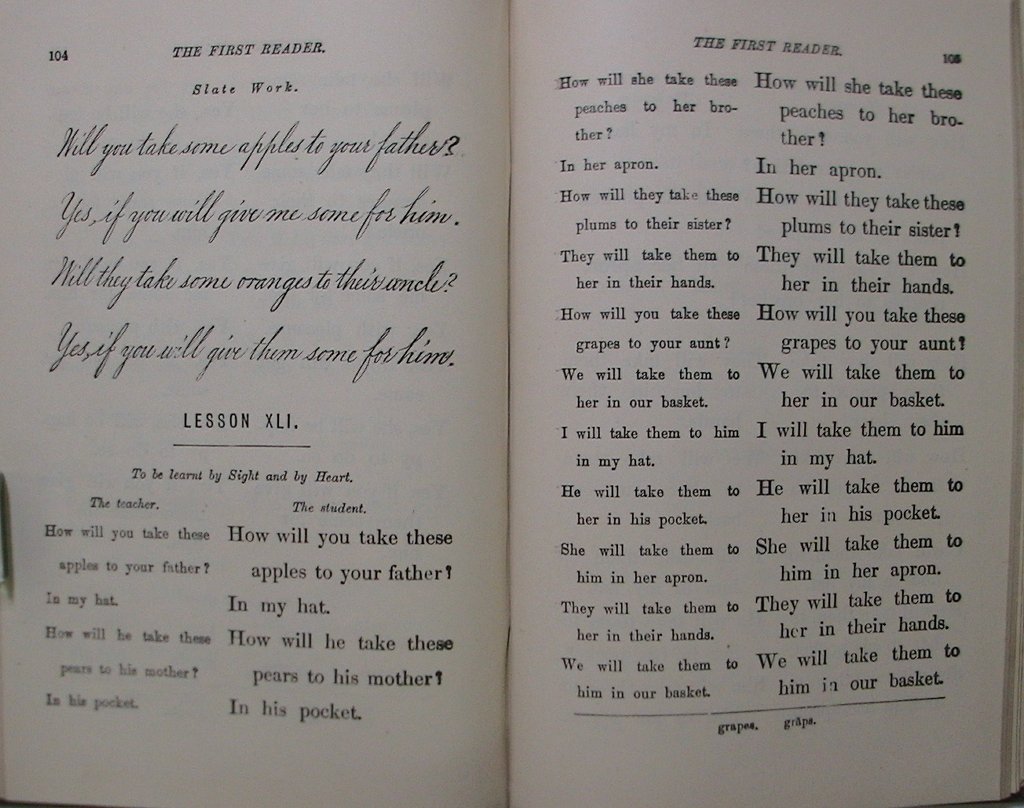 104
THE FIRST READER.
Slate Work.
Will you take some apples to your father?
Yes, if you will give me some for him.
Will they take some oranges to their uncle?
Yes, if you will give them some for him.
LESSON XLI.
To be learnt by Sight and by Heart.
The teacher.
How will you take these
apples to your father?
In my hat.
How will he take these
pears to his mother?
In his pocket.
The student.
How will you take these
apples to your father?
In my hat.
How will he take these
pears to his mother?
In his pocket.
THE FIRST READER.
105
How will she take these
peaches to her bro-
ther?
In her apron.
How will they take these
plums to their sister?
They will take them to
her in their hands.
How will you take these
grapes to your aunt?
We will take them to
her in our basket.
I will take them to him
in my hat.
He will take them to
her in his pocket.
She will take them to
him in her apron.
They will take them to
her in their hands.
We will take them to
him in our basket.
How will she take these
peaches to her bro-
ther?
In her apron.
How will they take these
plums to their sister?
They will take them to
her in their hands.
How will you take these
grapes to your aunt?
We will take them to
her in our basket.
I will take them to him
in my hat.
He will take them to
her in his pocket.
She will take them to
him in her apron.
They will take them to
her in their hands.
We will take them to
him in our basket.
grapes. grāps.